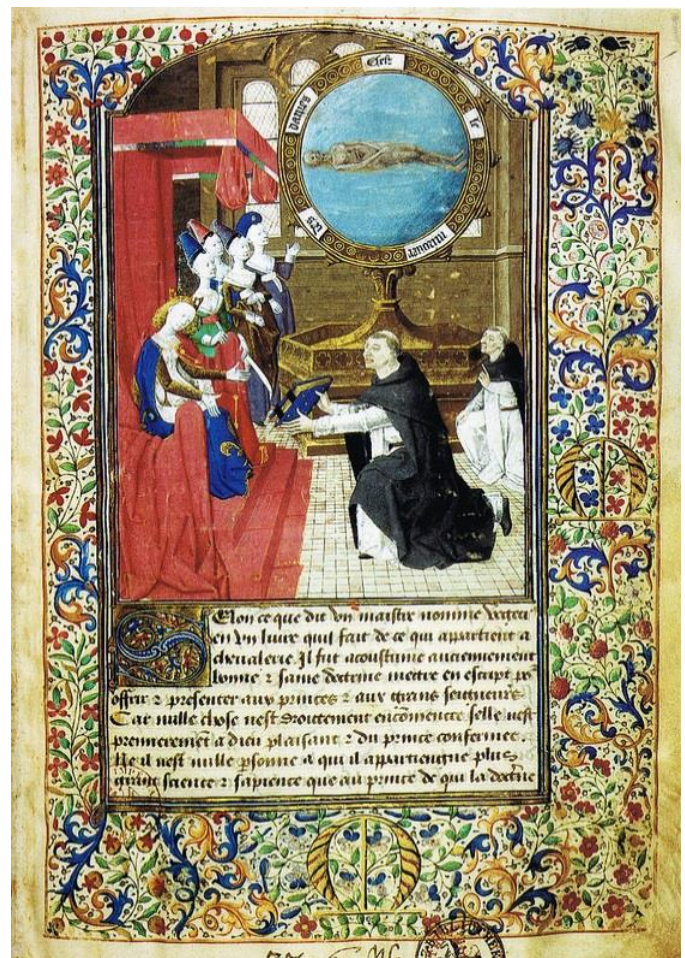 Cest
le
mirouer
des
dames
Selon ce que dit vn maistre nomme
en vn liure quil fait de ce qui appartient a
cheualerie. Il fut acoustume anciennement
bonne & saine doctrine mettre en escript por
offrir & presenter aux princes & aux grans seigneurs
Car nulle chose nest encōmence selle nest
premierement a dieu plaisant & du prince
Ne il nest nulle psonne a qui il appartiengne plus
grant science & sapience que au prince de qui la